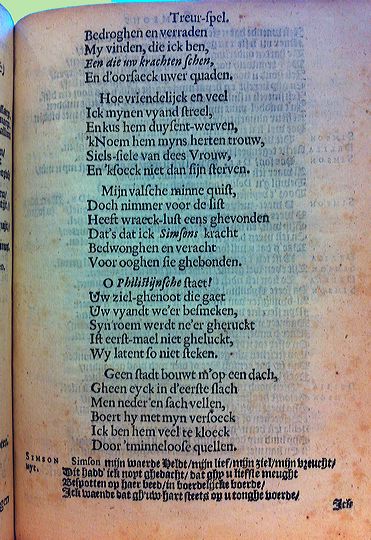 Treur-spel.
Bedroghen en verraden
My vinden, die ick ben,
Een die uw krachten schen,
En d'oorsaeck uwer quaden.
Hoe vriendelijck en veel
Ick mynen vyand streel,
En kus hem duysent-werven,
'kNoem hem myns herten trouw,
Siels-siele van dees Vrouw,
En 'ksoeck niet dan sijn sterven.
Mijn valsche minne quist,
Doch nimmer voor de list
Heeft wraeck-lust eens ghevonden
Dat's dat ick Simsons kracht
Bedwonghen en veracht
Voor ooghen sie ghebonden.
O Philistijnsche staet!
Uw ziel-ghenoot die gaet
Uw vyandt we'er besmeken,
Syn roem werdt ne'er gheruckt
Ist eerst-mael niet gheluckt,
Wy latent so niet steken.
Geen stadt bouwt m'op een dach,
Gheen eyck in d'eerste slach
Men neder en sach vellen,
Boert hy met myn versoeck
Ick ben hem veel te kloeck
Door 'tminneloose quellen.
SIMSON Simson mijn waerde Heldt/mijn lief/mijn ziel/mijn vreucht/
uyt. Dit hadd' ick noyt ghedacht/ dat ghy u liefste meught
Bespotten op haer beed/in voerdelijcke voerde/
Ick waende dat gh'uw hart steets op u tonghe voerde/
Ick